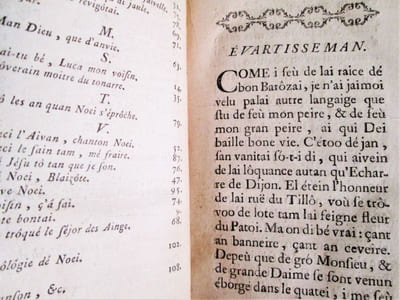 jault.
revigôtai.
M.
Man Dieu, que d'anvie. 35.
S.
ai-tu bé, Luca mon voisin, 79.
ôverain moitre du tonarre. 64.
T.
ô les an quan Noei s'éprôche. 35.
V.
ci l'Aivan, chanton Noei. 71.
ci le sain tam, mé fraire. 49.
é Jésu tô tan que je son. 56.
Noei, Blaizôte. 47.
ve Noei. 95.
oisin, ç'á fai. 74.
te bontai. 68.
troqué le séjor des Ainge. 94.
102.
ológie dé Noei. 108.
&c.
ÉVARTISSEMAN.
COME i seù de lai raice dé
bon Barôzai, je n'ai jaimoi
velu palai autre langaige que
stu de seù mon peire, & de seù
mon gran peire, ai qui Dei
baille bone vie. C'étoo dé jan,
san vanitai so-t-i di, qui aivein
de lai lôquance autan qu'Echar-
re de Dijon. El étein l'honneur
de lai ruë du Tillô, voù se trô-
voo de lote tam lai seigne fleur
du Patoi. Ma on di bé vrai: çant
an banneire, çant an ceveire.
Depeù que de grò Monsieu, &
de grande Daime se sont venun
éborgé dans le quatei, i me su